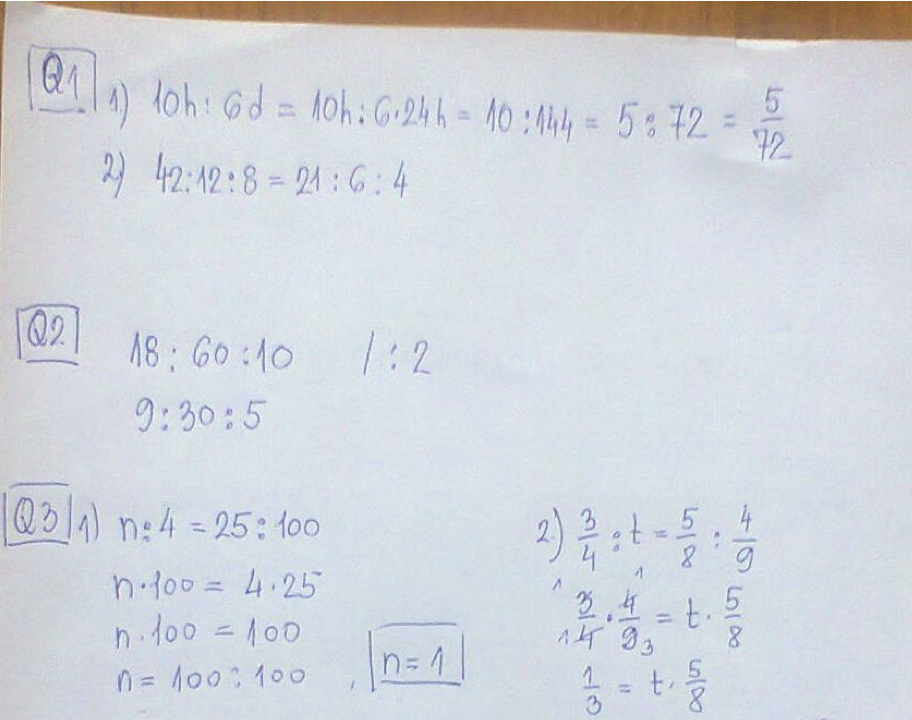 Q1 1) 10h : 6d = 10h : 6·24h = 10 : 144 = 5 : 72 = 5/72
2) 42:12:8 = 21 : 6 : 4
Q2 18 : 60 : 10 / : 2
9 : 30 : 5
Q3 1) n:4 = 25 : 100
n·100 = 4·25
n·100 = 100
n = 100 : 100, n = 1
2) 3/4 : t = 5/8 : 4/9
1 3/4 1 · 1 4/9 3 = t · 5/8
1/3 = t · 5/8